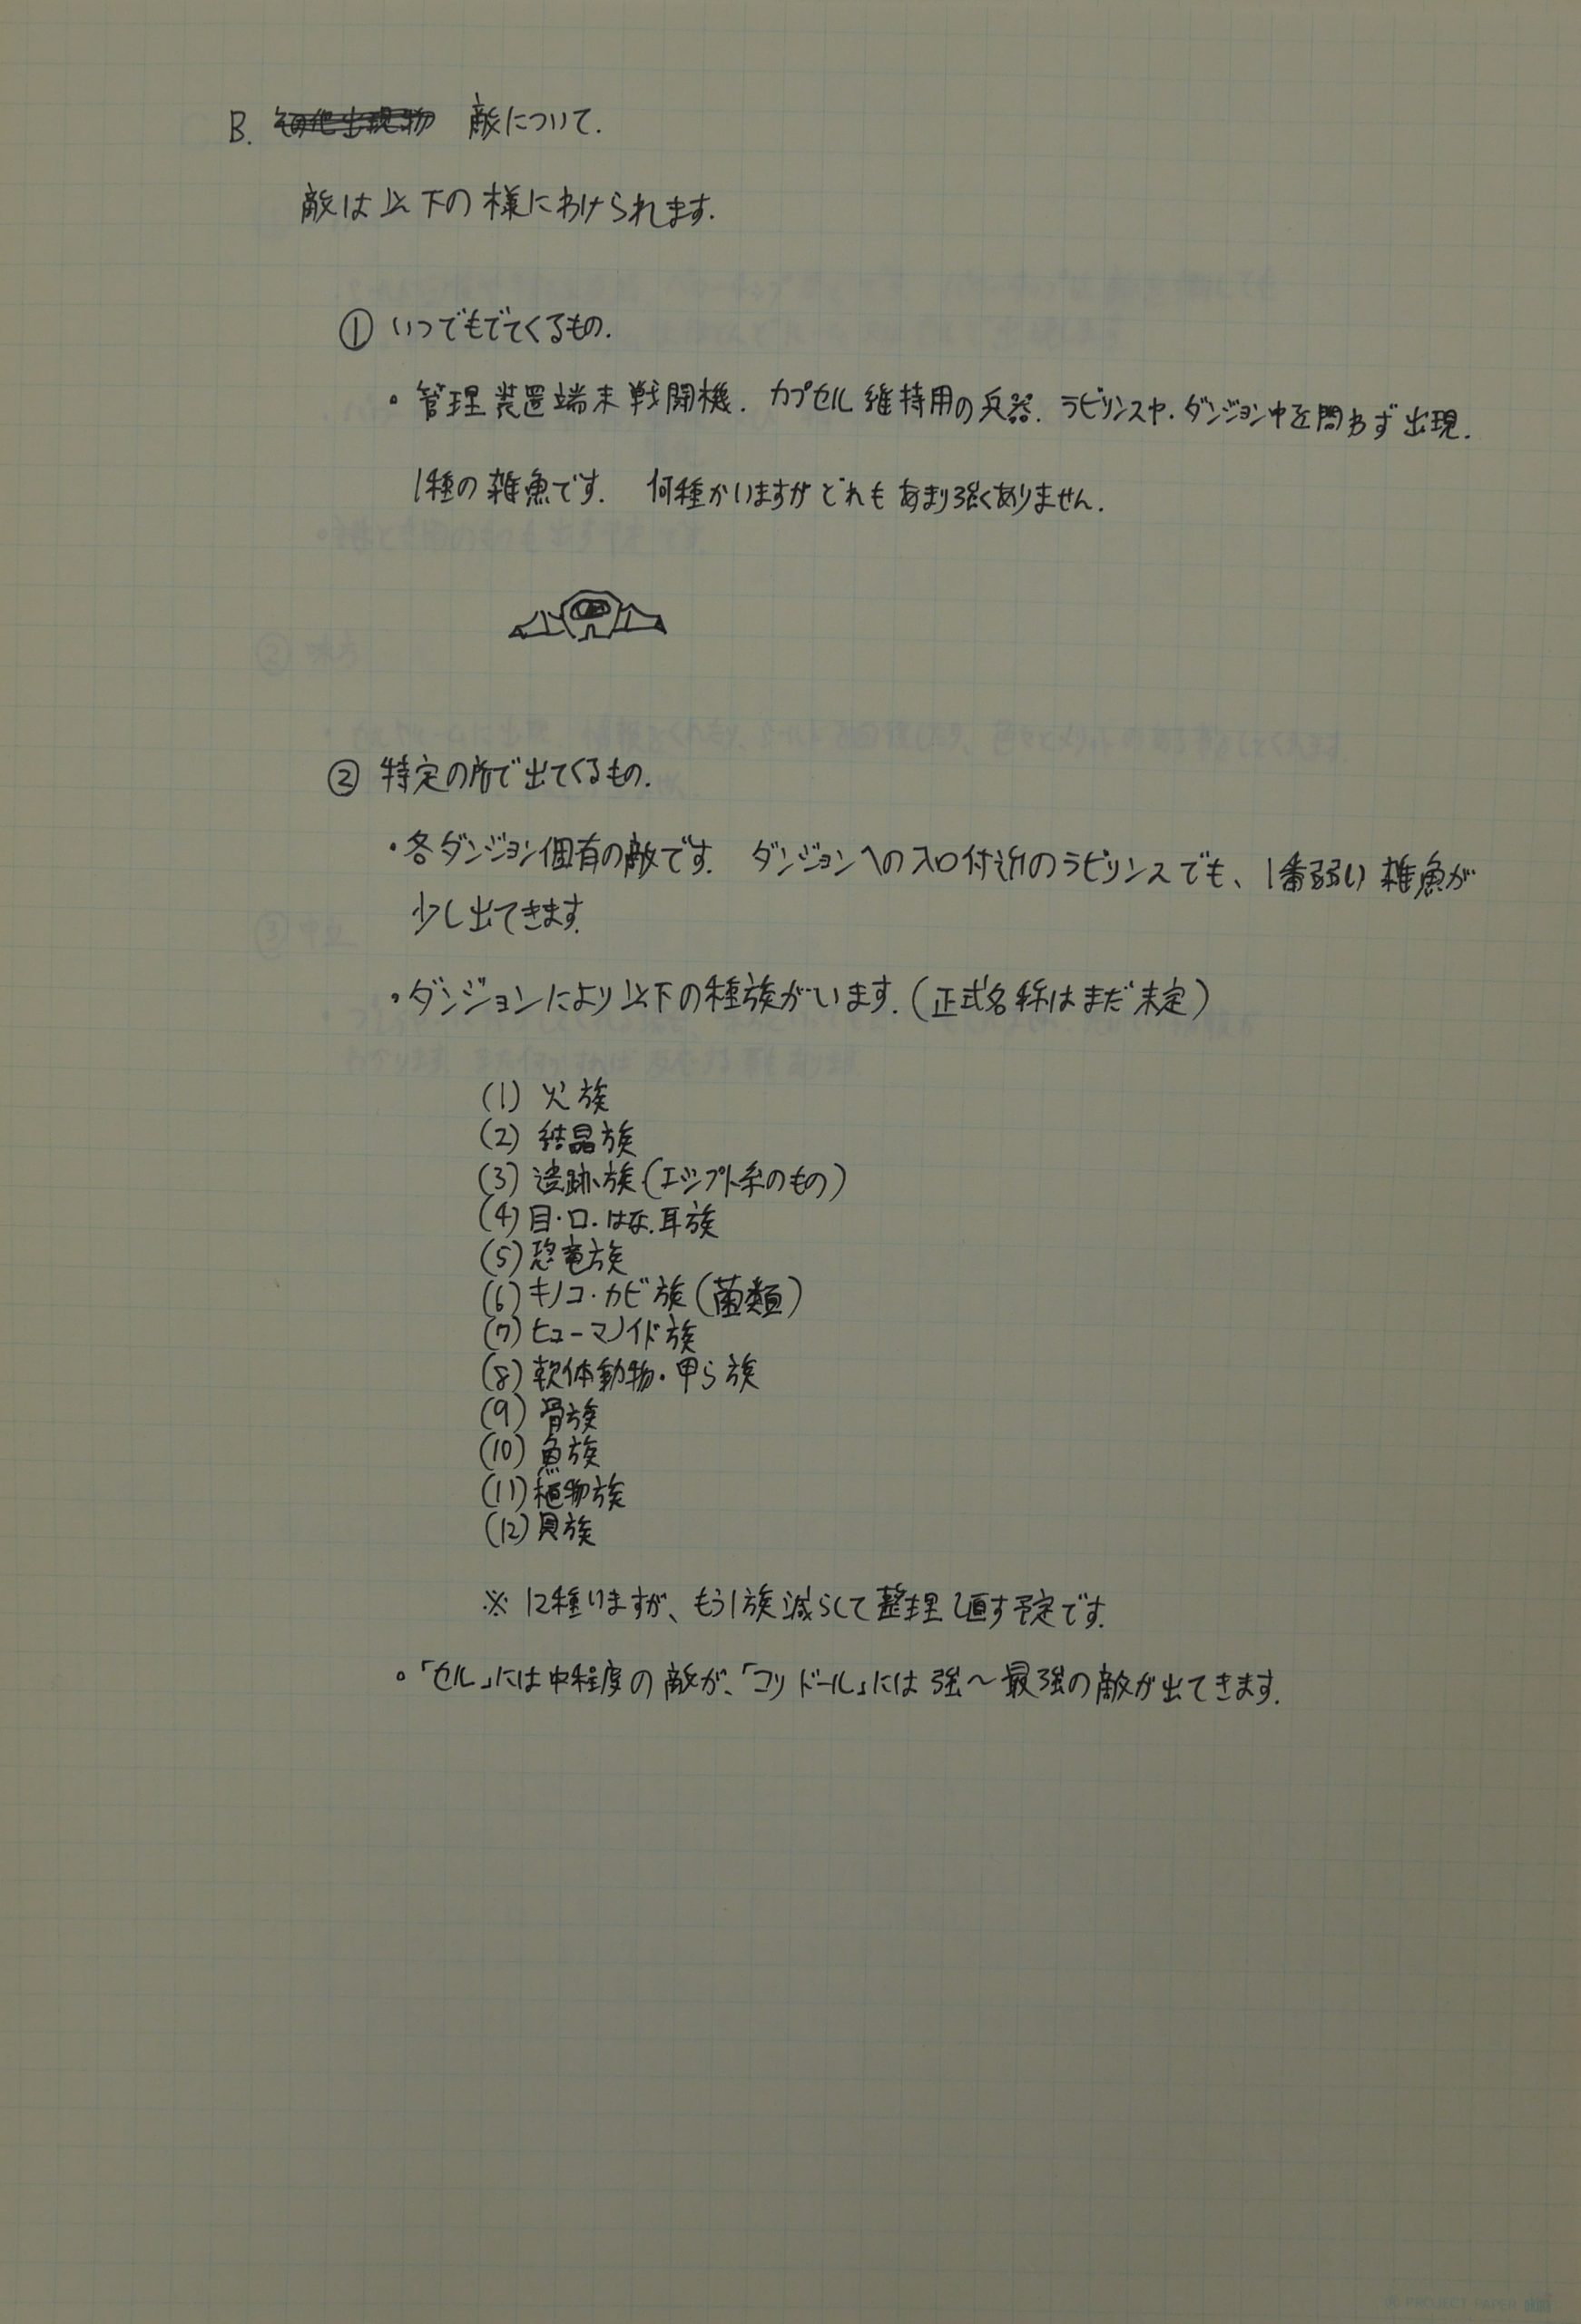 B. その他出現物 敵について.
敵は以下の様にわけられます.
① いつでもでてくるもの.
・管理装置端末戦闘機. カプセル維持用の兵器. ラビリンスヤ.ダンジョン中を問わず出現.
1種の雑魚です. 何種かいますがどれもあまり強くありません.
② 特定の所で出てくるもの.
・各ダンジョン個有の敵です. ダンジョンへの入口付近のラビリンスでも、1番弱い雑魚が
少し出てきます.
・ダンジョンにより以下の種族がいます.(正式名称はまだ未定)
(1) 火族
(2) 結晶族
(3) 遺跡族(エジプト系のもの)
(4) 目・口.はな.耳族
(5) 恐竜族
(6) キノコ・カビ族(菌類)
(7) ヒューマノイド族
(8) 軟体動物・甲ら族
(9) 骨族
(10) 魚族
(11) 植物族
(12) 貝族
※ 12種いますが、もう1族減らして整理し直す予定です.
・「セル」には中程度の敵が、「コリドール」には強～最強の敵が出てきます.
PROJECT PAPER